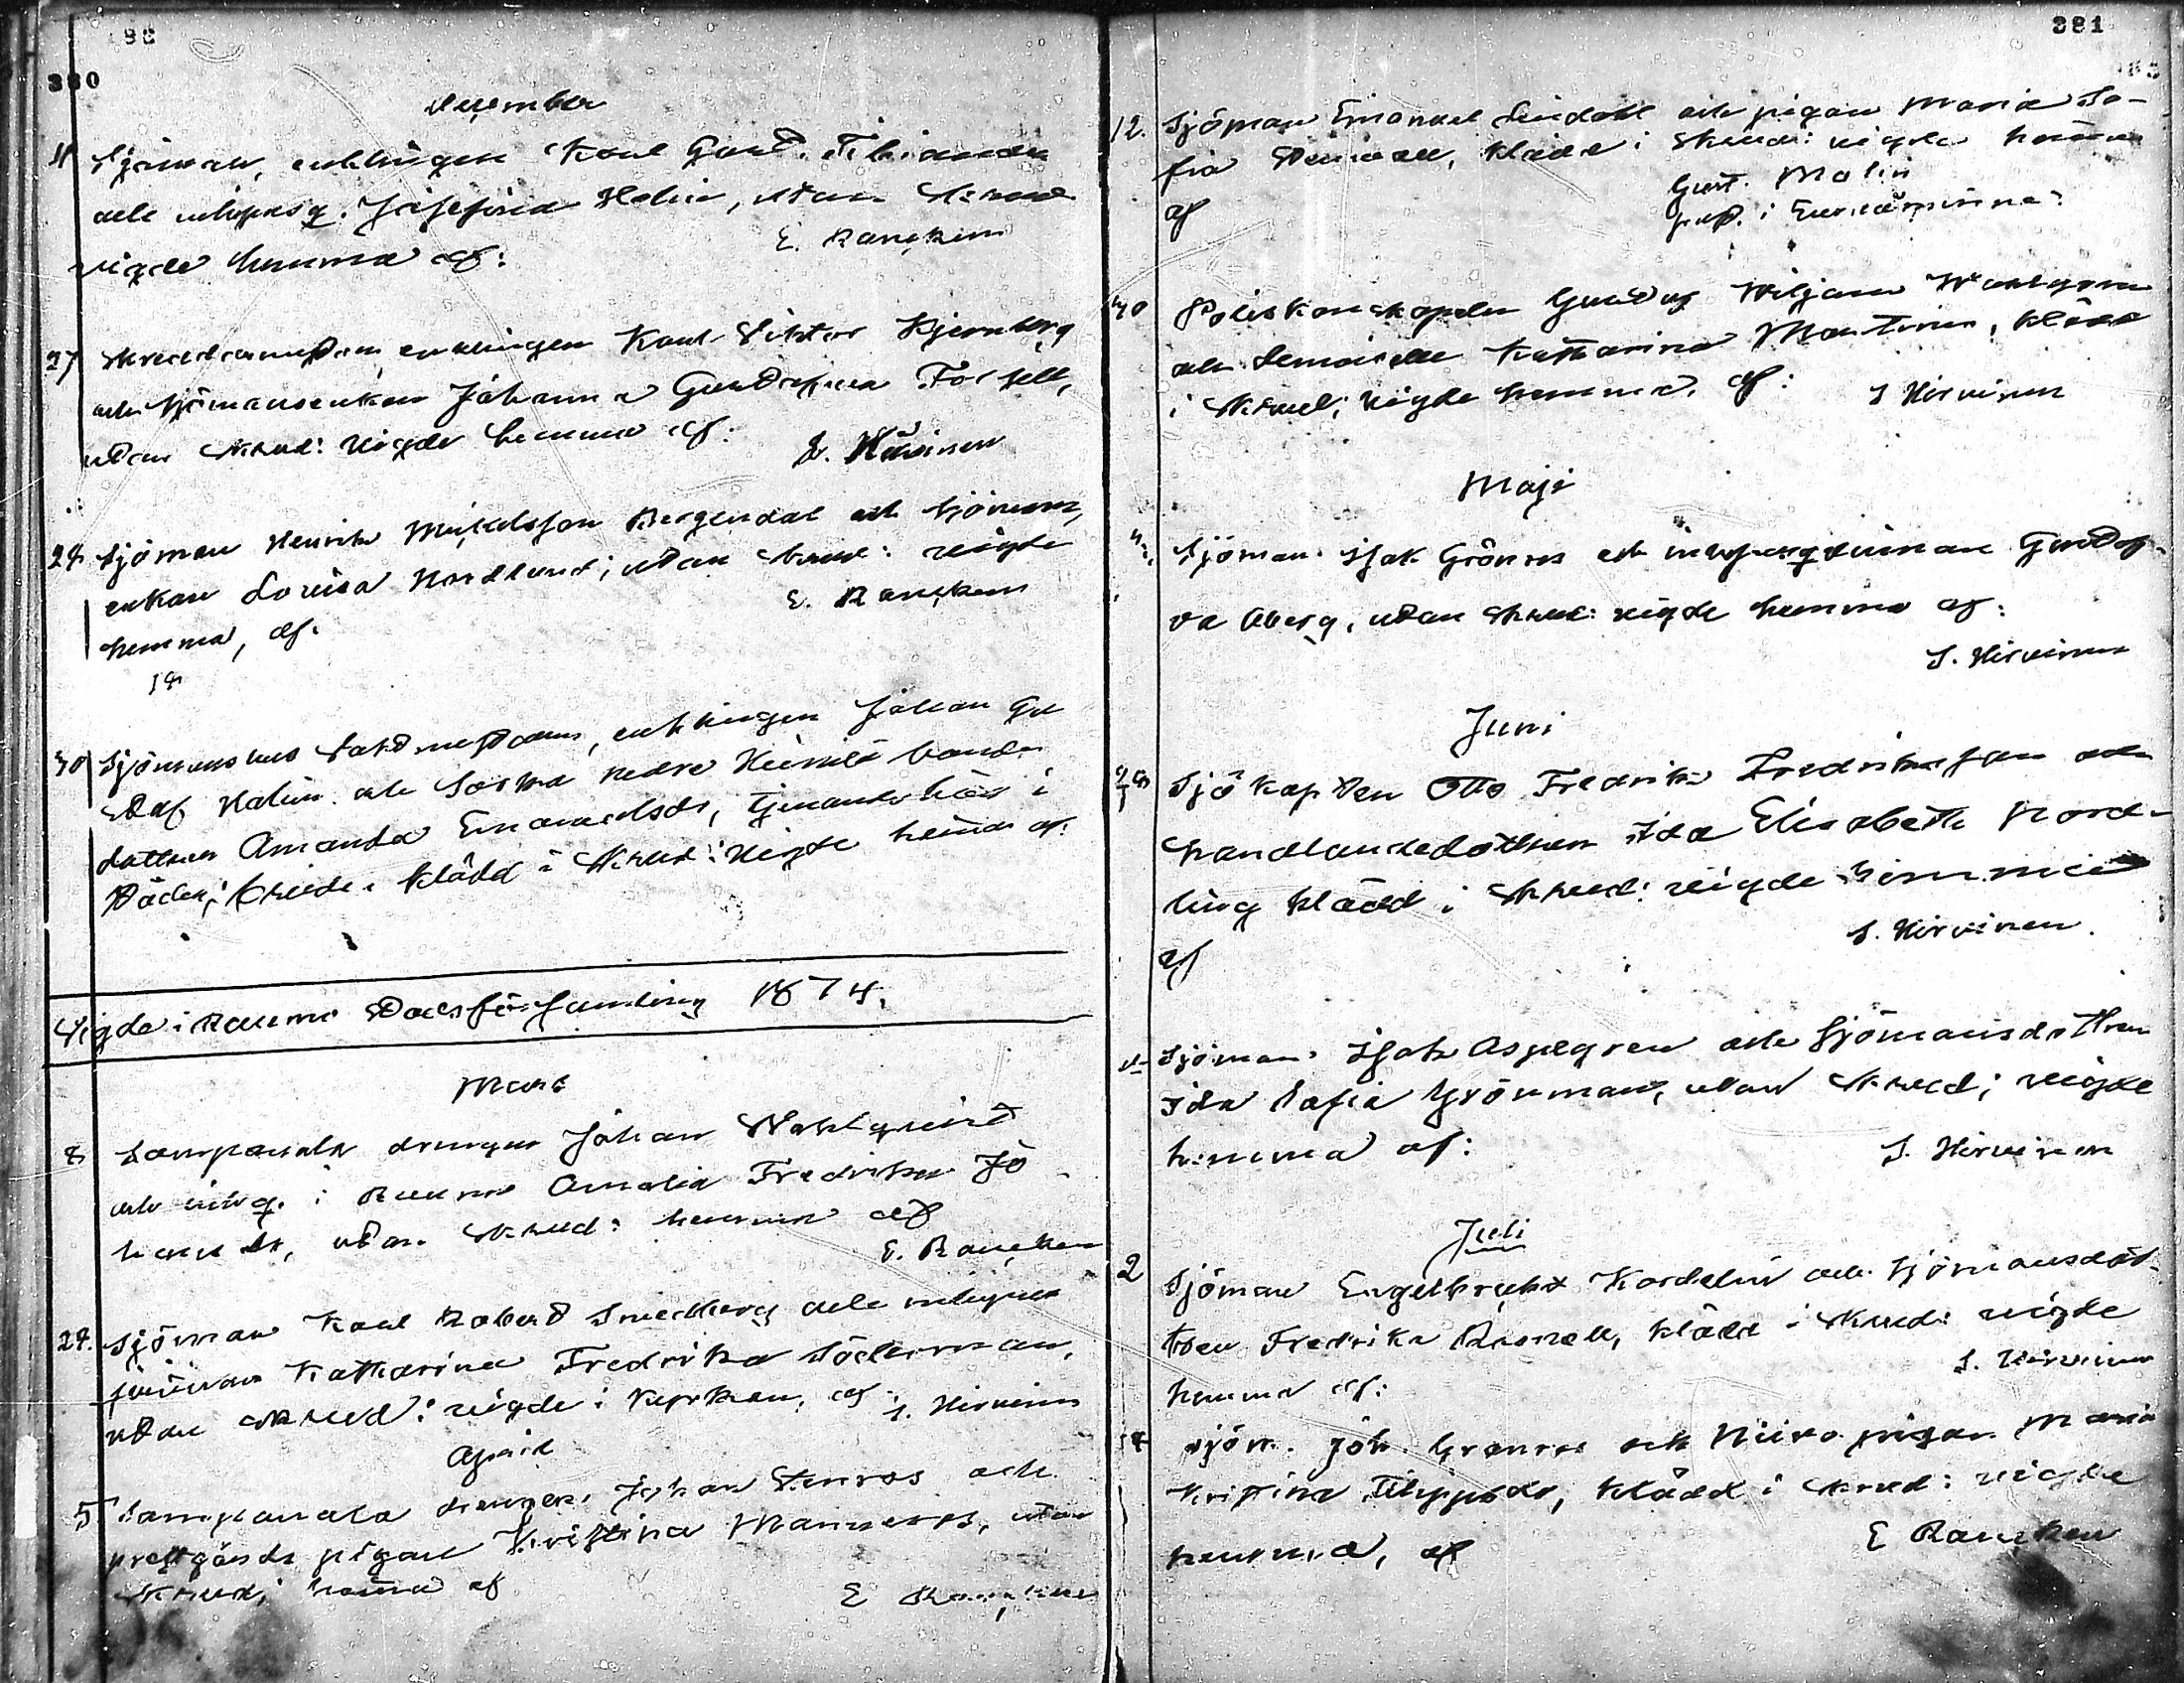 380
december
11 Sjöman, enklingen Karl Gust.
och inhysesq. Josefina Holin, utan skrud
vigde hemma af:
E. Rancken
27 Skräddaremästaren, enklingen Karl Viktor Stjernberg
och Sjömansenkan Johanna Gustafsson Forsell,
utan skrud: vigde hemma af:
Hirvinen
28 Sjöman Henrik Mickelsson Bergendal och sjömans,
enkan Lovisa Nordlund; utan skrud: vigde
hemma, af.
E. Rancken
30 Sjömanshus enklingen Johan Gu
staf Holin och nedre bonde
dottren Amanda Emanuelsdr, tjenande här i
staden; klädd i skrud: vigde hemma af:
Vigde i Raumo Stadsförsamling 1874.
Mars
8 Sampaanala drengen Johan Wahlqvist
och inhq. i Raumo Amalia Fredrika Jo
hansdr, utan skrud: hemma af
E. Rancken
28. Sjöman Karl Robert Smedberg och inhyses
qvinnan Katharina Fredrika Söderman,
utan skrud: vigde i kyrkan, af:
S. Hirvinen
April
5 Sampaanala drengen Johan Stenros och
prestgårds pigan Kristina Manneros, utan
skrud; hemma af
E Rancken
381
12. Sjöman Emanuel Lindahl och pigan Maria So-
fia klädd i skrud: vigde hemma
af
Gust. Molin
past. i Euraåminne:
30 Poliskonstapeln Gustaf Viljam Wahlgren
och Demoiselle Katharina Martinen, klädd
i skrud; vigde hemma, af:
S Hirvinen
Maji
Sjöman Isak Grönros och inhysesqvinnan Gusta-
va Åberg, utan skrud: vigde hemma af:
S. Hirvinen
Juni
Sjökapten Otto Fredrik Fredriksson och
handlandedottren Ida Elisabeth Nord-
ling klädd i skrud: vigde hemma
af
S. Hirvinen.
Sjöman Isak Aspegren och Sjömansdottren
Ida Sofia Grönman, utan skrud; vigde
hemma af:
S. Hirvinen
Juli
2 Sjöman Engelbrekt Kordelin och Sjömansdot-
tren Fredrika klädd i skrud: vigde
hemma af:
S. Hirvinen
Sjöm. Joh. Grönros och pigan Maria
Kristina Filippsdr, klädd i skrud: vigde
hemma, af
E Rancken